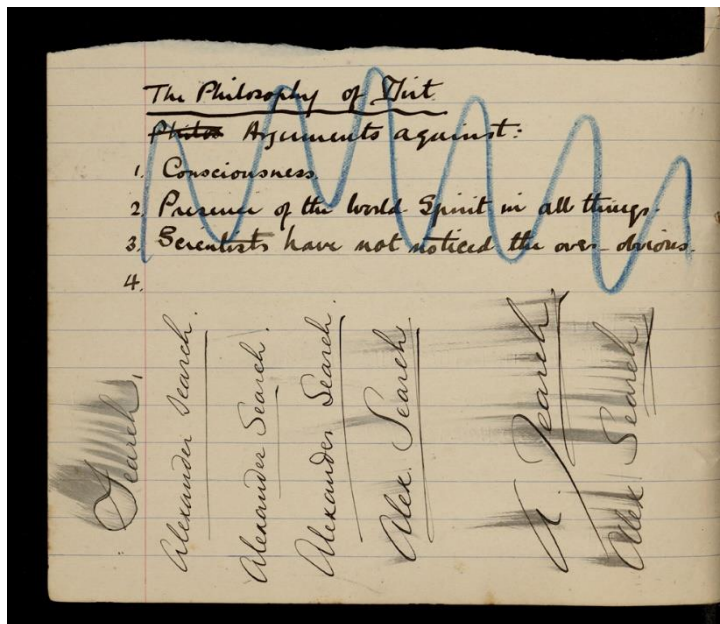 The Philosophy of Dirt.
Philos Arguments against:
1. Consciousness.
2. Presence of the World-Spirit in all things.
3. Scientists have not noticed the over-obvious.
4.
Search.
Alexander Search.
Alexander Search.
Alexander Search.
Alex. Search.
A. Search
Alex Search